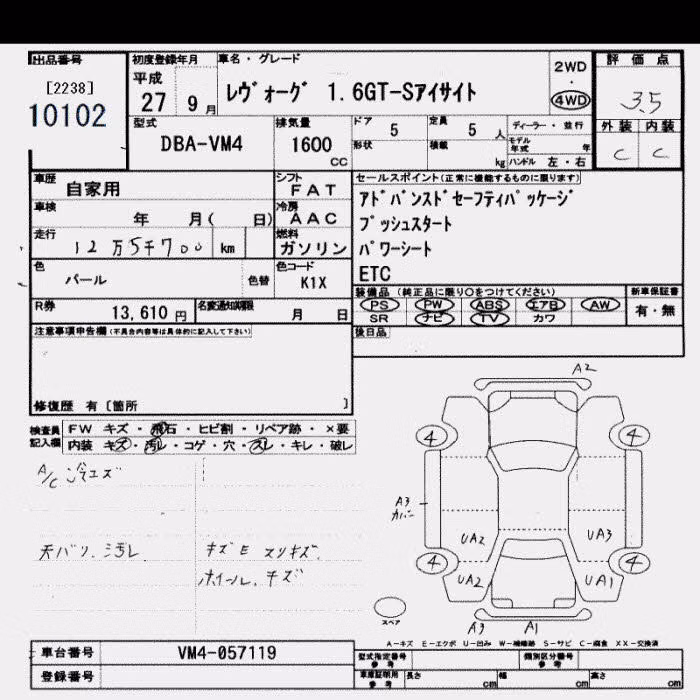 出品番号
[2238]
10102
初度登録年月
平成
27 9 月
車名・グレード
レヴォーグ 1.6GT-Sアイサイト
2WD
・
4WD
評価点
3.5
外装 内装
C C
型式
DBA-VM4
排気量
1600
cc
ドア 5
形状
定員 5 人
積載 kg
ディーラー・並行
モデル年式 年
ハンドル 左・右
車歴 自家用
シフト FAT
車検 年 月( 日)
冷房 AAC
走行 12万5千700 km
燃料 ガソリン
色 パール 色替
色コード K1X
R券 13,610 円
名変通知期限 月 日
セールスポイント(正常に機能するものに限ります)
アドバンスドセーフティパッケージ
プッシュスタート
パワーシート
ETC
装備品(純正品に限り○をつけてください)
PS PW ABS エアB AW
SR ナビ TV カワ
新車保証書
有・無
後日品
注意事項申告欄(不具合内容等は具体的に記入して下さい)
修復歴 有〔箇所 〕
検査員記入欄
FW キズ・飛石・ヒビ割・リペア跡・×要
内装 キズ・汚レ・コゲ・穴・スレ・キレ・破レ
A/C 冷エズ
天バリ.汚レ
キズE スリキズ.
ホイール.キズ
A2
4 4
A3
カバー
UA2 UA3
4 4
UA2 UA1
スペア
A3 A1
A-キズ E-エクボ U-凹み W-補修跡 S-サビ C-腐食 XX-交換済
車台番号 VM4-057119
登録番号
型式指定番号
参考
類別区分番号
参考
車庫証明用
参考
長さ cm
幅 cm
高さ cm